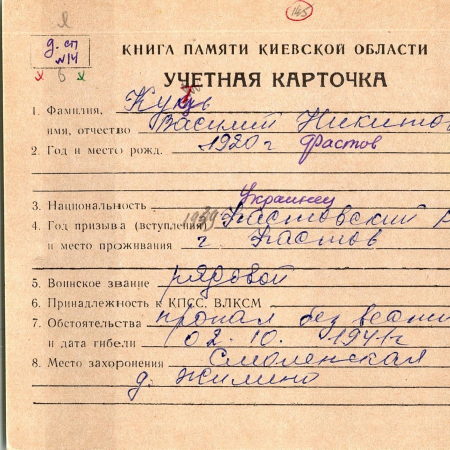 145
Я
д. сп
N14
х В х
КНИГА ПАМЯТИ КИЕВСКОЙ ОБЛАСТИ
УЧЕТНАЯ КАРТОЧКА
1. Фамилия,
имя, отчество Василий Никитов
2. Год и место рожд. 1920 г Фастов
3. Национальность Украинец
4. Год призыва (вступления) 1939 Фастовский Р
и место проживания г. Фастов
5. Воинское звание рядовой
6. Принадлежность к КПСС, ВЛКСМ
7. Обстоятельства пропал без вести
и дата гибели 02.10.1941г
8. Место захоронения Смоленская
д. Жилино